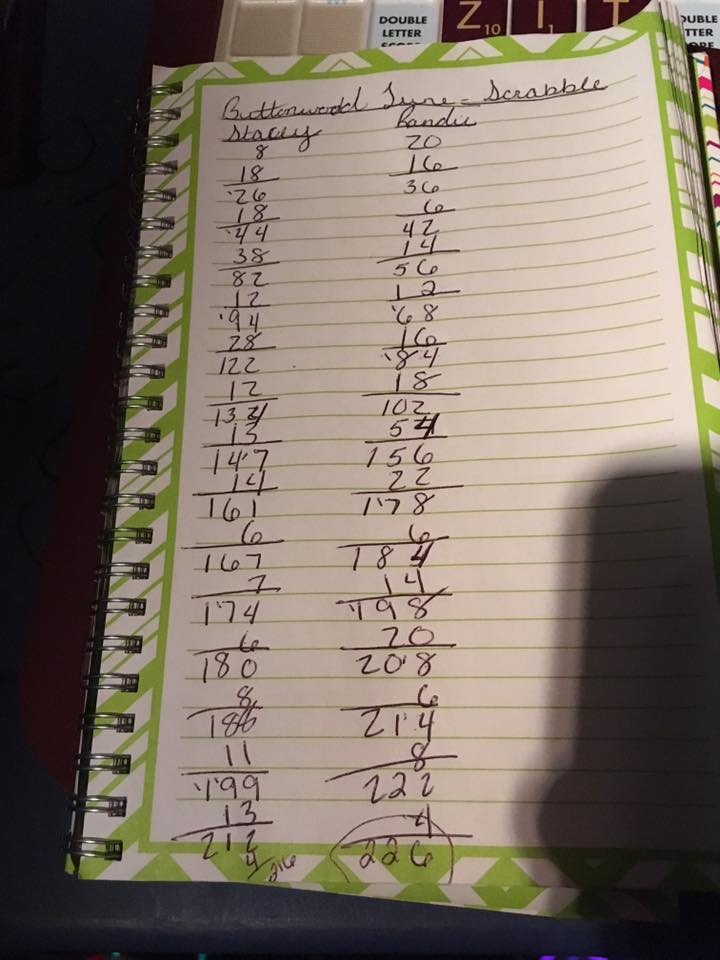 DOUBLE
LETTER
SCORE
Z10 I1 T
UBLE
TTER
ORE
Buttonwood - Scrabble
Stacey Randie
8 20
18 16
26 36
18 6
44 42
38 14
82 56
12 12
94 68
28 16
122 84
12 18
134 102
13 54
147 156
14 22
161 178
6 6
167 184
7 14
174 198
6 20
180 208
8 6
188 214
11 8
199 222
13 4
212 226
4 216